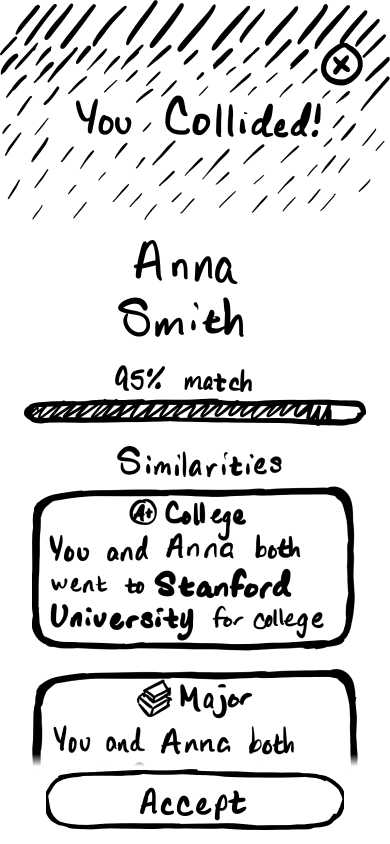 You Collided!
Anna
Smith
95% match
Similarities
A+ College
You and Anna both
went to Stanford
University for college
Major
You and Anna both
Accept